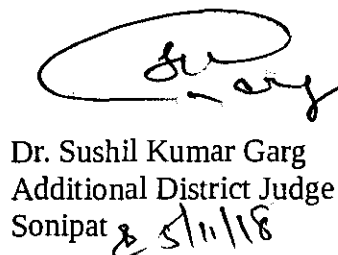 Garg
Dr. Sushil Kumar Garg
Additional District Judge
Sonipat 5/11/18